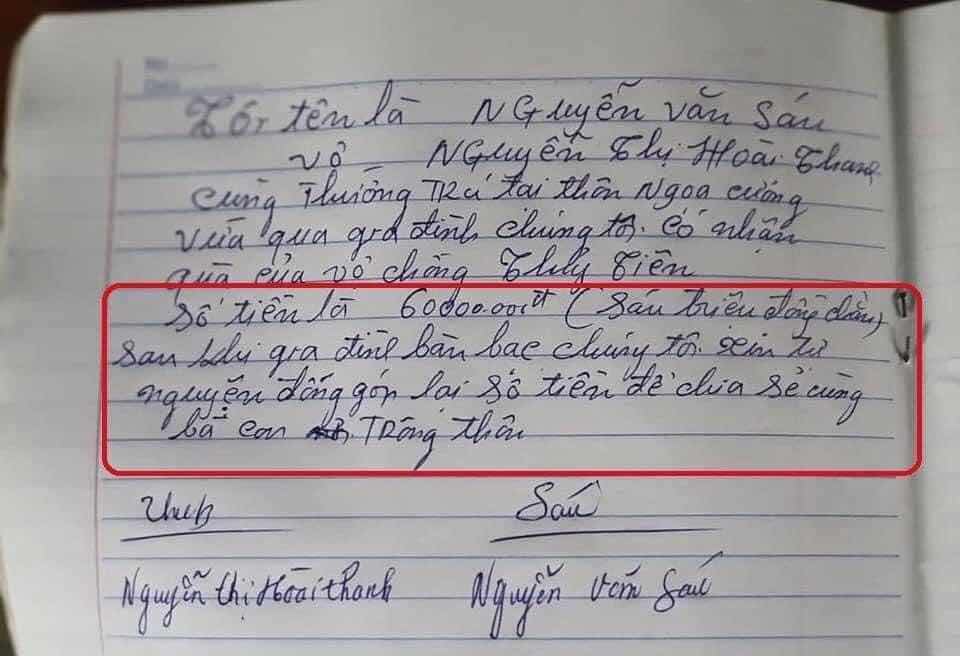 Tôi tên là NGuyễn văn Sáu
vợ NGuyễn Thị Hoài Thanh
cùng Thường Trú tại thôn Ngoa cương
vừa qua gia đình chúng tôi có nhận
quà của vợ chồng Thủy Tiên
Số tiền là 6.000.000đ (Sáu triệu đồng chẵn)
Sau khi gia đình bàn bạc chúng tôi xin tự
nguyện đóng góp lại số tiền để chia sẻ cùng
bà con Trong thôn
Sáu
Nguyễn thị Hoài thanh Nguyễn Văn Sáu